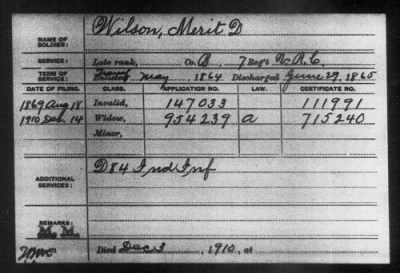 NAME OF SOLDIER: Wilson, Merit D
SERVICE: Late rank, Co. B, 7 Reg't V.R.C.
TERM OF SERVICE: Enlisted May, 1864, Discharged June 29, 1865
DATE OF FILING. CLASS. APPLICATION NO. LAW. CERTIFICATE NO.
1869 Aug 18 Invalid, 147033 111991
1910 Dec. 14 Widow, 954239 a 715240
Minor,
ADDITIONAL SERVICES: D 84 Ind Inf
REMARKS:
Died Dec. 3, 1910, at